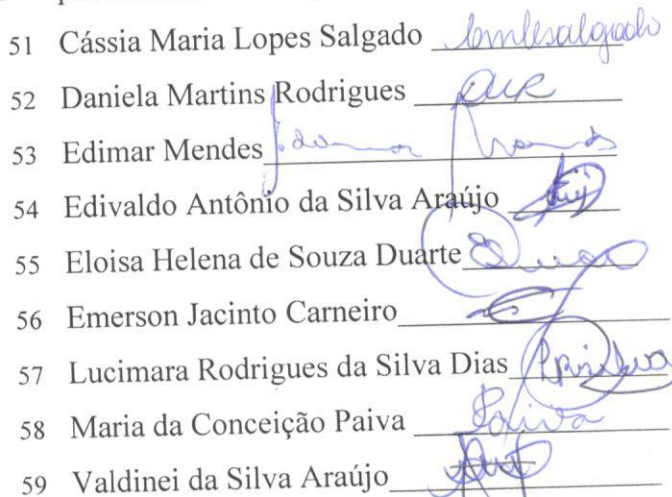 51 Cássia Maria Lopes Salgado
52 Daniela Martins Rodrigues DMR
53 Edimar Mendes
54 Edivaldo Antônio da Silva Araújo
55 Eloisa Helena de Souza Duarte
56 Emerson Jacinto Carneiro
57 Lucimara Rodrigues da Silva Dias
58 Maria da Conceição Paiva Paiva
59 Valdinei da Silva Araújo